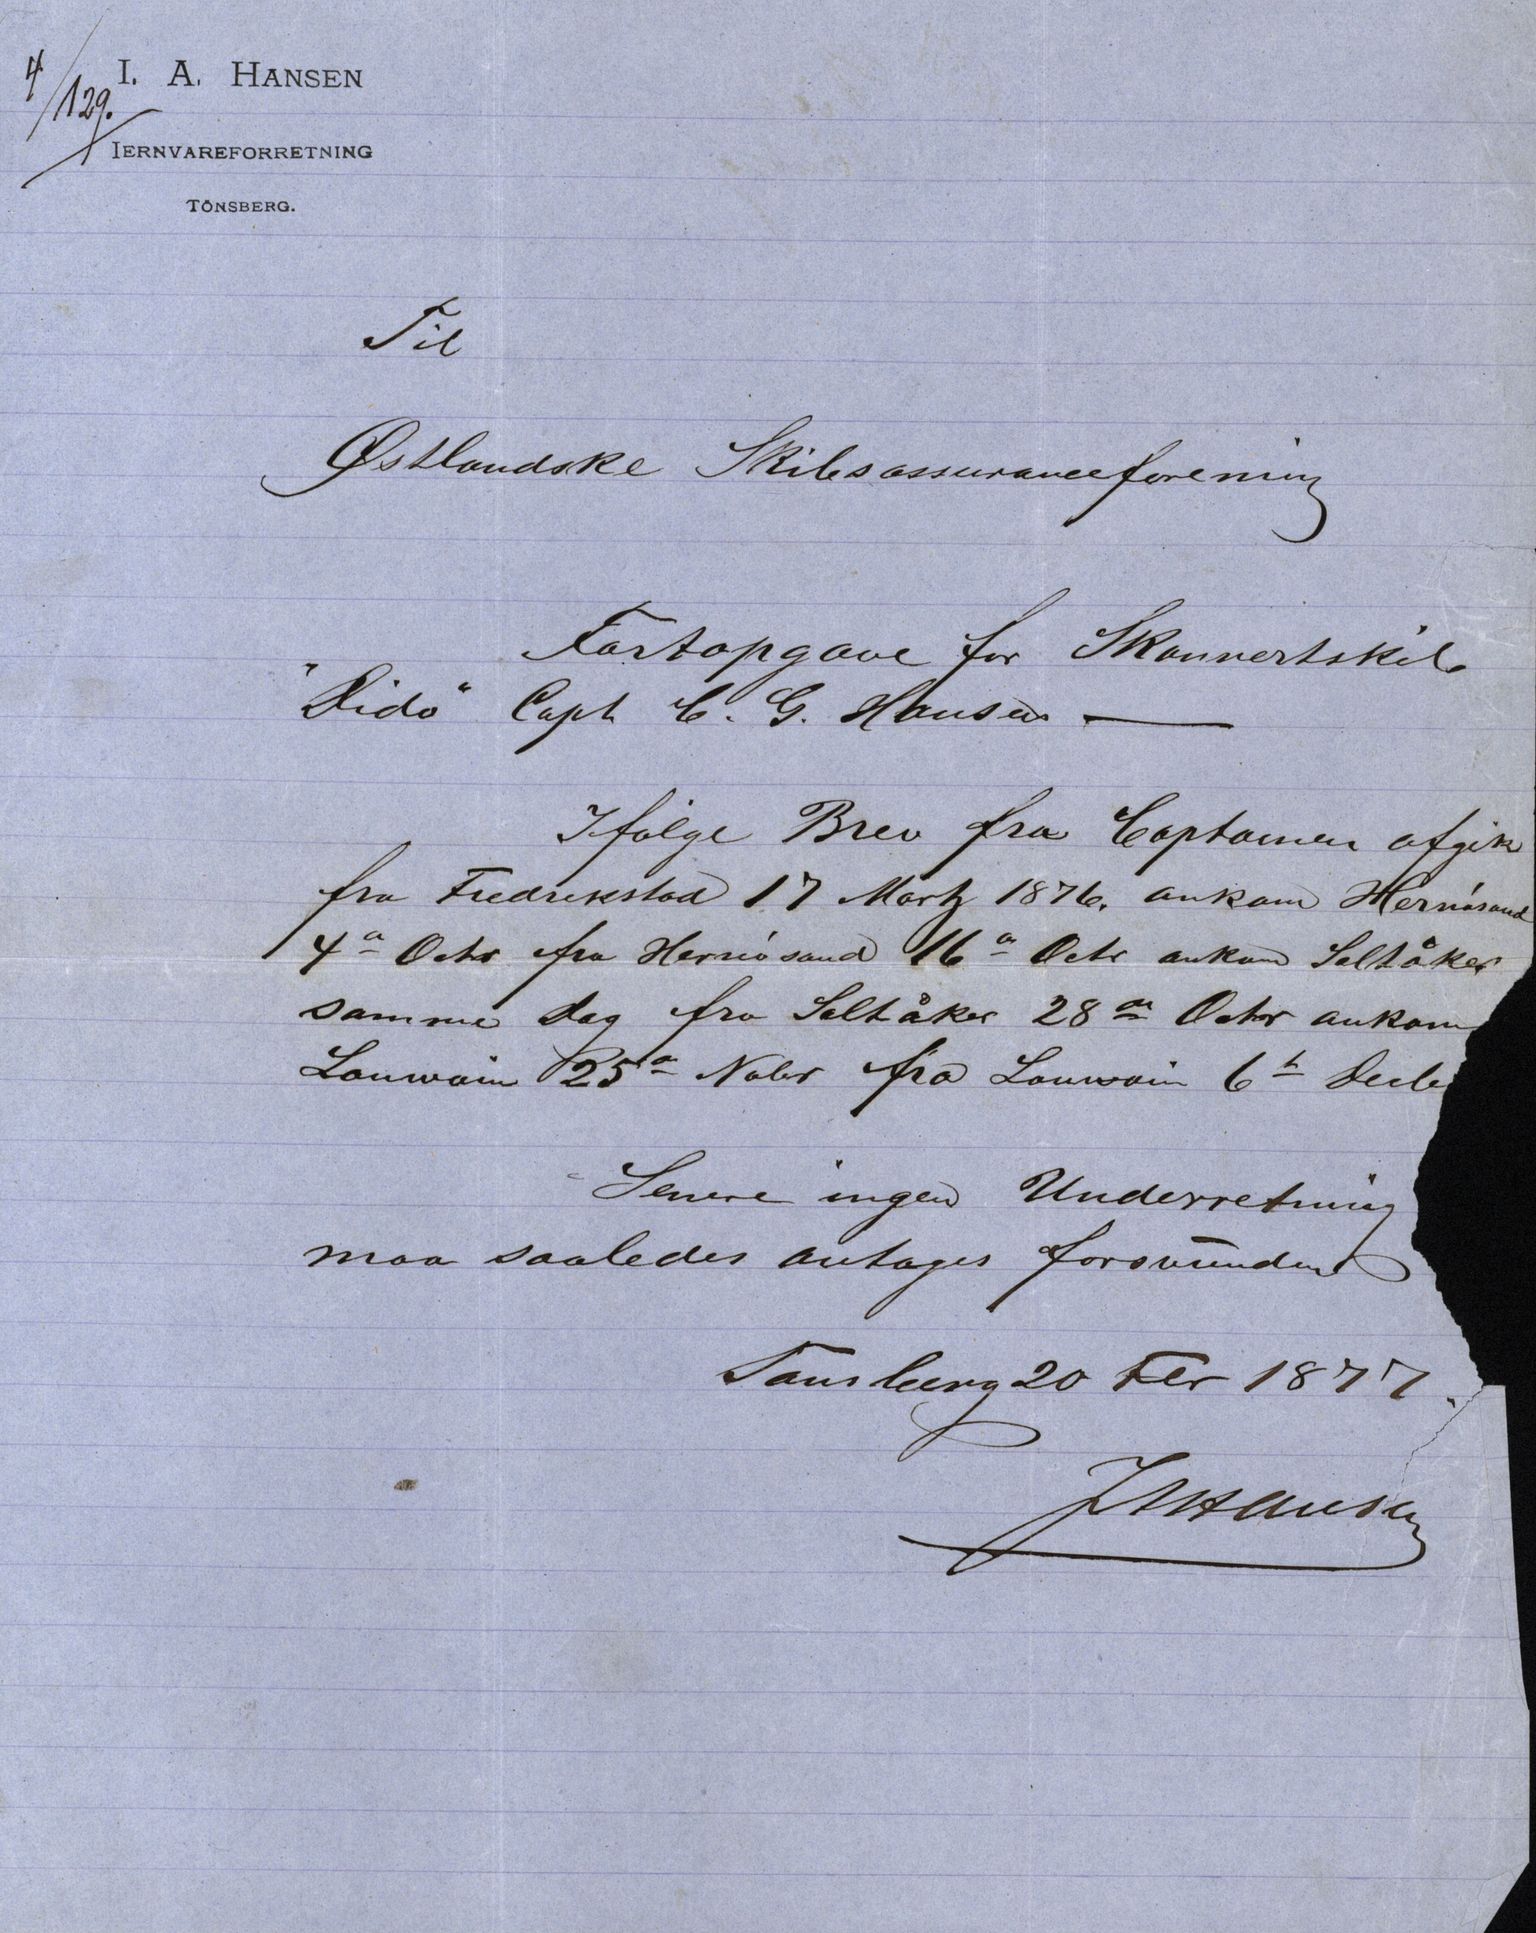 4/129.
I. A. HANSEN
IERNVAREFORRETNING
TÖNSBERG.
Til
Østlandske Skibsassuranceforening
Fartopgave for Skonnertskib
"Dido" Capt C. G. Hansen
Ifølge Brev fra Captainen afgik
fra Fredrikstad 17 Martz 1876. ankom Hernösand
4a Octr fra Hernösand 16a Octr ankom Saltåker
samme Dag fra Saltåker 28a Octr ankom
Louwain 25a Nobr fra Louwain 6t Decb
Senere ingen Underretning
maa saaledes antages forsvunden
Tønsberg 20 Febr 1877.
I A Hansen